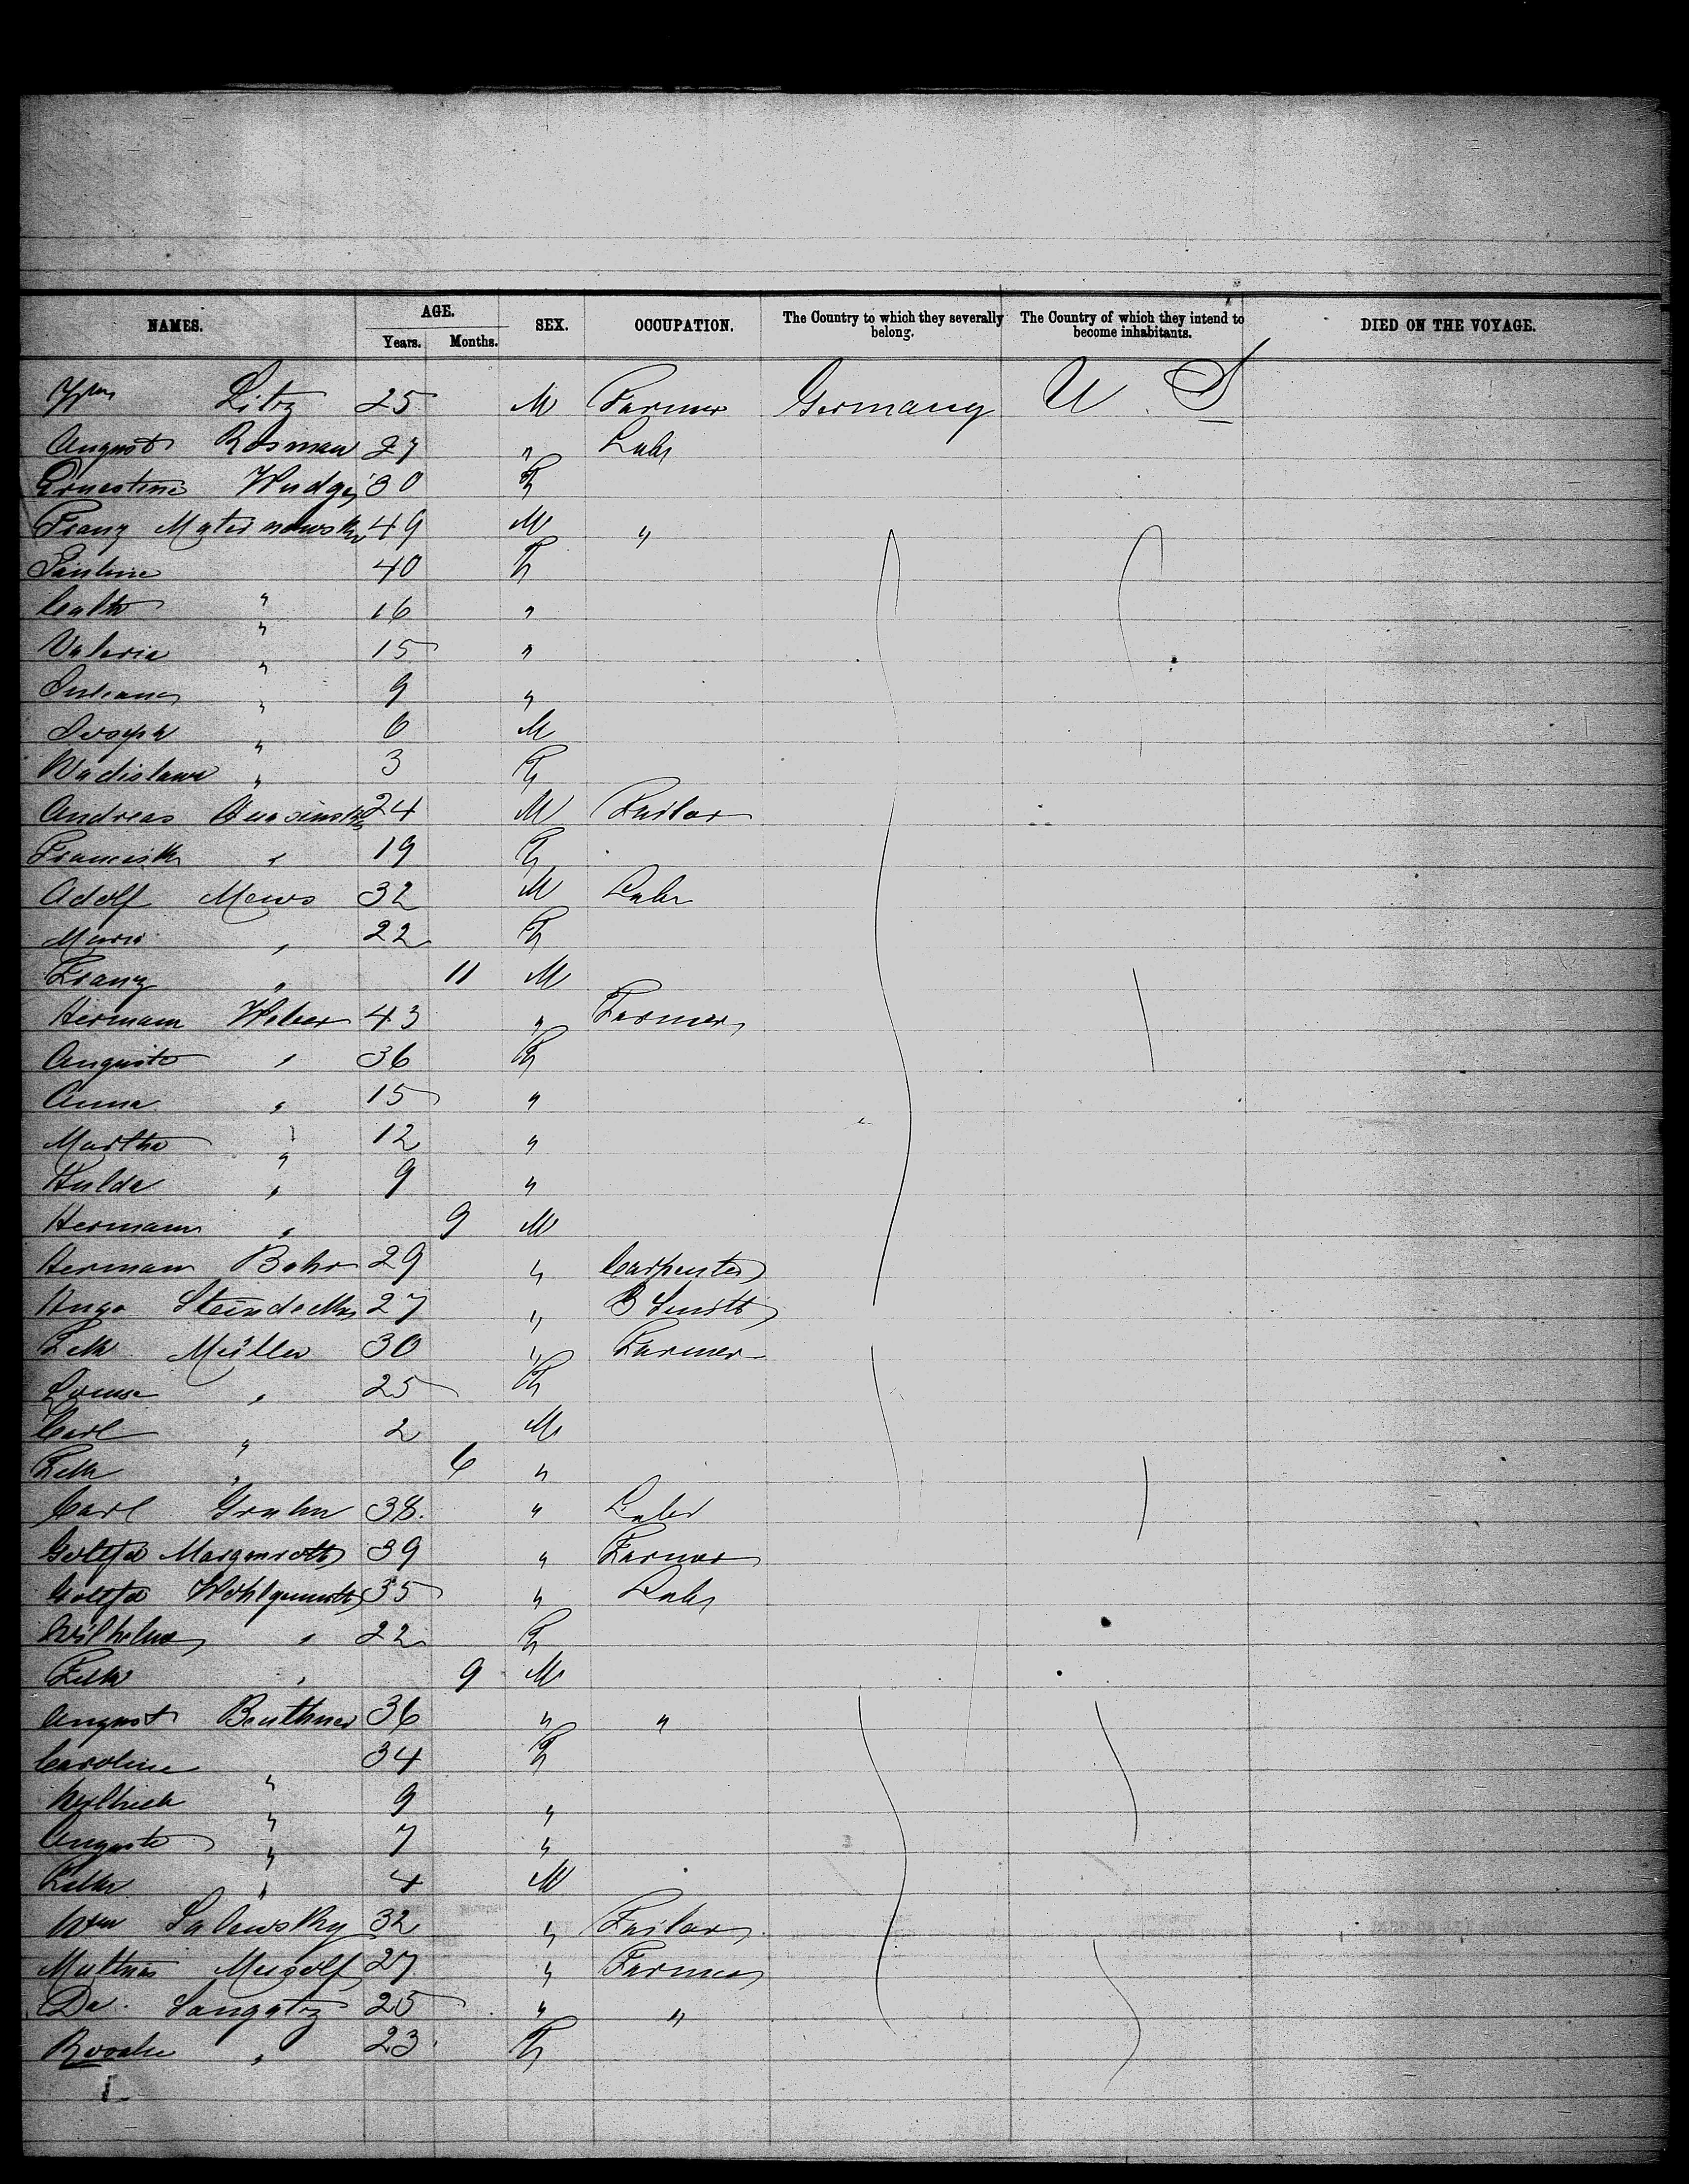 NAMES. AGE. SEX. OCCUPATION. The Country to which they severally belong. The Country of which they intend to become inhabitants. DIED ON THE VOYAGE.
Years. Months.
Litz 25 M Farmer Germany U. S
August Rosman 27 " Labr
Ernestine 30 F
Franz 49 M "
Pauline 40 F
Cath " 16 "
Valeria " 15 "
Juliana " 9 "
Joseph " 6 M
Wadislawa " 3 F
Andreas 24 M Tailor
Francisk " 19 F
Adolf Mews 32 M Labr
Marie " 22 F
Franz " 11 M
Hermann Weber 43 " Farmer
Auguste " 36 F
Anna " 15 "
Martha " 12 "
Hulda " 9 "
Hermann " 9 M
Herman Bahr 29 " Carpenter
Hugo 27 " B Smith
Müller 30 " Farmer
Louise " 25 F
Carl " 2 M
" 6 "
Carl Grahn 38. " Labr
Gottfd Morgenroth 39 " Farmer
Gottfd Wohlgemuth 35 " Labr
Wilhelma " 22 F
" 9 M
August Beuthner 36 " "
Caroline " 34 F
" 9 "
Auguste " 7 "
" 4 M
Wm Salewsky 32 " Tailor
27 " Farmer
Da. Sangatz 25 " "
" 23 F